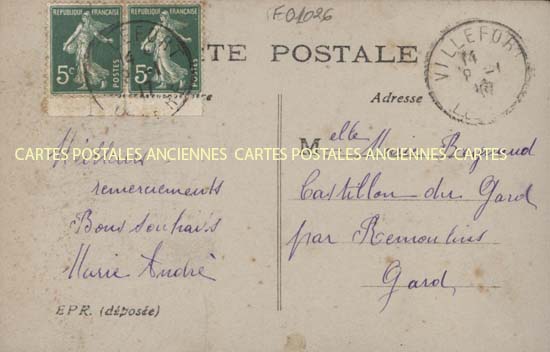 F01026
REPUBLIQUE FRANÇAISE
REPUBLIQUE FRANÇAISE
5c
POSTES
5c
POSTES
TE POSTALE
VILLEFORT
Adresse
CARTES POSTALES ANCIENNES CARTES POSTALES ANCIENNES CARTES
remerciements
Bons souhaits
Marie André
EPR. (déposée)
Melle Marie
Castillon du Gard
par Remoulins
Gard